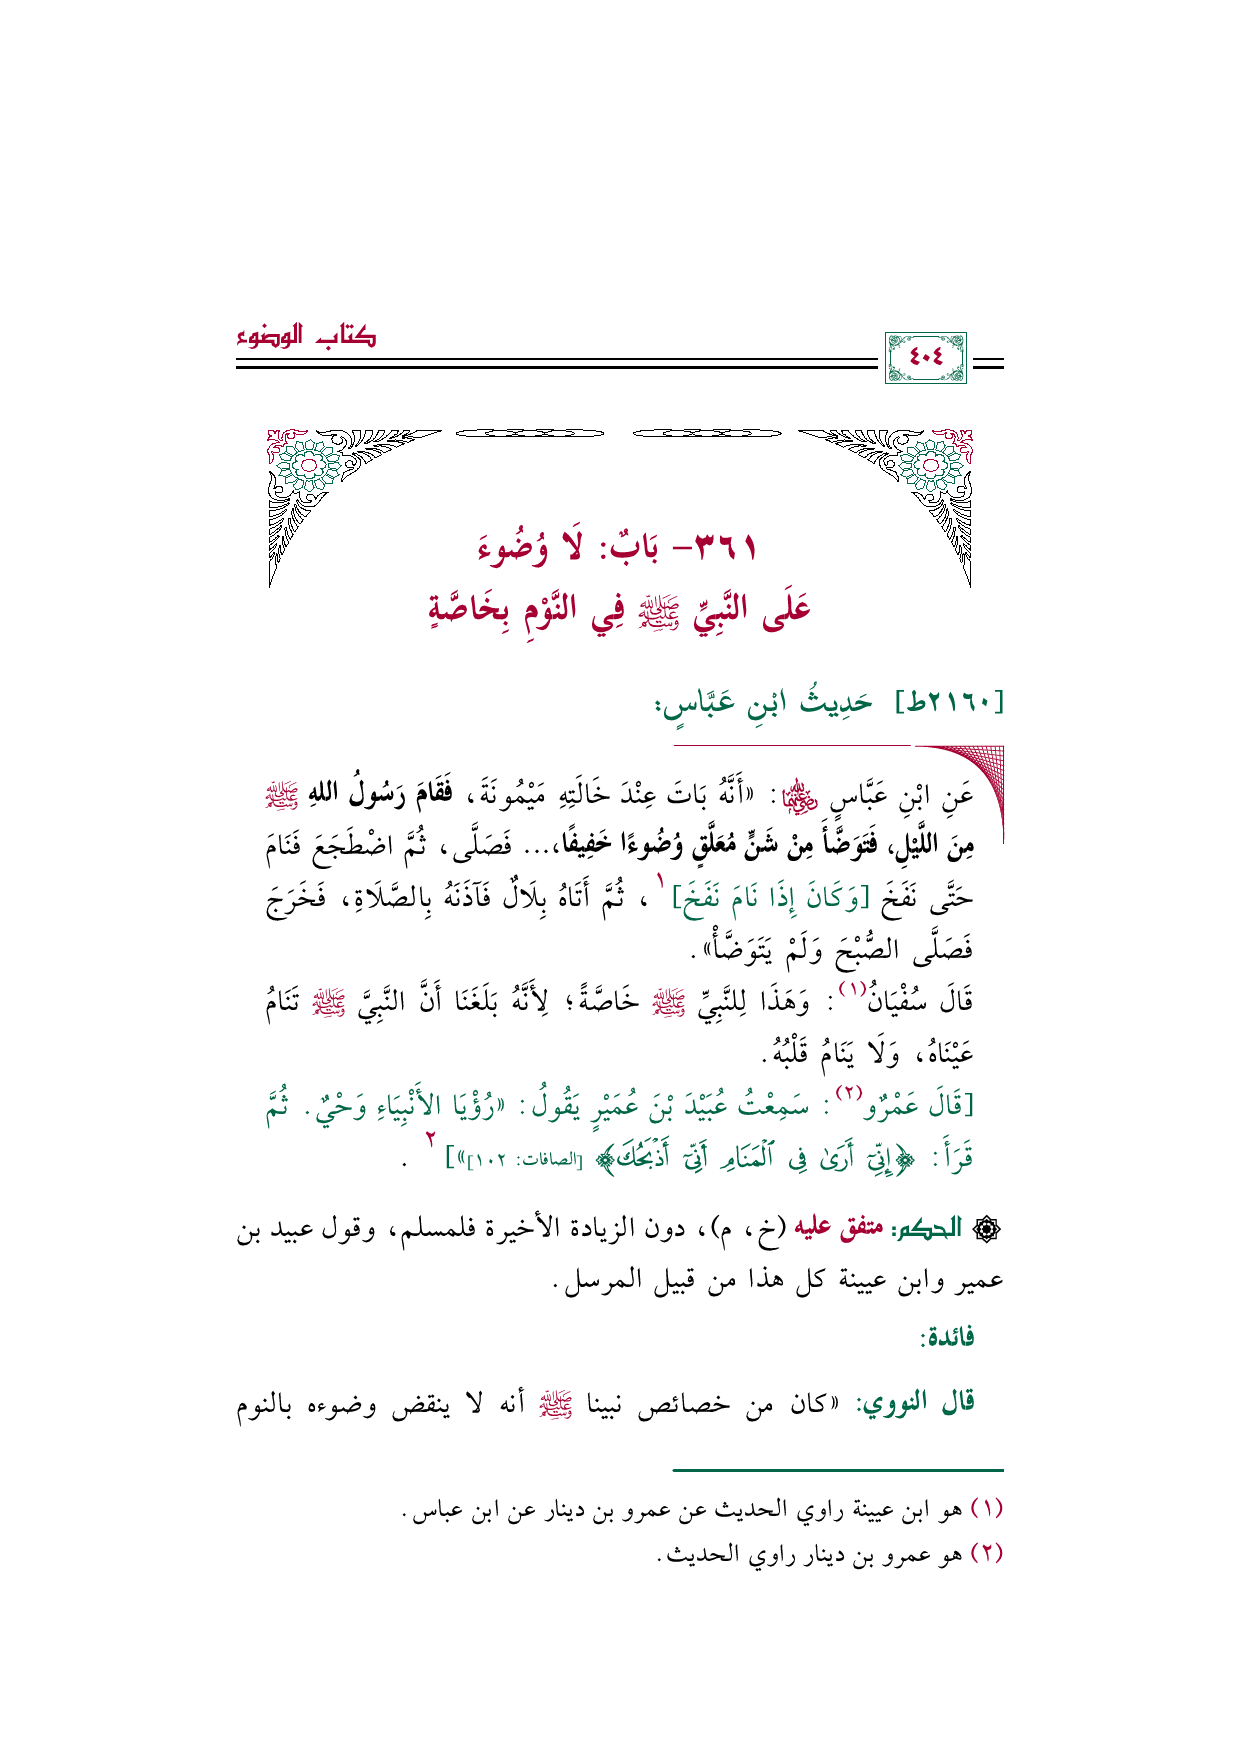 كتاب الوضوء
٤٠٤
٣٦١- بَابٌ: لَا وُضُوءَ
عَلَى النَّبِيِّ ﷺ فِي النَّوْمِ بِخَاصَّةٍ
[٢١٦٠ط] حَدِيثُ ابْنِ عَبَّاسٍ:
عَنِ ابْنِ عَبَّاسٍ رضي الله عنهما: «أَنَّهُ بَاتَ عِنْدَ خَالَتِهِ مَيْمُونَةَ، فَقَامَ رَسُولُ اللهِ ﷺ
مِنَ اللَّيْلِ، فَتَوَضَّأَ مِنْ شَنٍّ مُعَلَّقٍ وُضُوءًا خَفِيفًا،... فَصَلَّى، ثُمَّ اضْطَجَعَ فَنَامَ
حَتَّى نَفَخَ [وَكَانَ إِذَا نَامَ نَفَخَ]١، ثُمَّ أَتَاهُ بِلَالٌ فَآذَنَهُ بِالصَّلَاةِ، فَخَرَجَ
فَصَلَّى الصُّبْحَ وَلَمْ يَتَوَضَّأْ».
قَالَ سُفْيَانُ(١): وَهَذَا لِلنَّبِيِّ ﷺ خَاصَّةً؛ لِأَنَّهُ بَلَغَنَا أَنَّ النَّبِيَّ ﷺ تَنَامُ
عَيْنَاهُ، وَلَا يَنَامُ قَلْبُهُ.
[قَالَ عَمْرٌو(٢): سَمِعْتُ عُبَيْدَ بْنَ عُمَيْرٍ يَقُولُ: «رُؤْيَا الأَنْبِيَاءِ وَحْيٌ. ثُمَّ
قَرَأَ: ﴿إِنِّيٓ أَرَىٰ فِي ٱلْمَنَامِ أَنِّيٓ أَذْبَحُكَ﴾ [الصافات: ١٠٢]»]٢.
الحكم: متفق عليه (خ، م)، دون الزيادة الأخيرة فلمسلم، وقول عبيد بن
عمير وابن عيينة كل هذا من قبيل المرسل.
فائدة:
قال النووي: «كان من خصائص نبينا ﷺ أنه لا ينقض وضوءه بالنوم
(١) هو ابن عيينة راوي الحديث عن عمرو بن دينار عن ابن عباس.
(٢) هو عمرو بن دينار راوي الحديث.